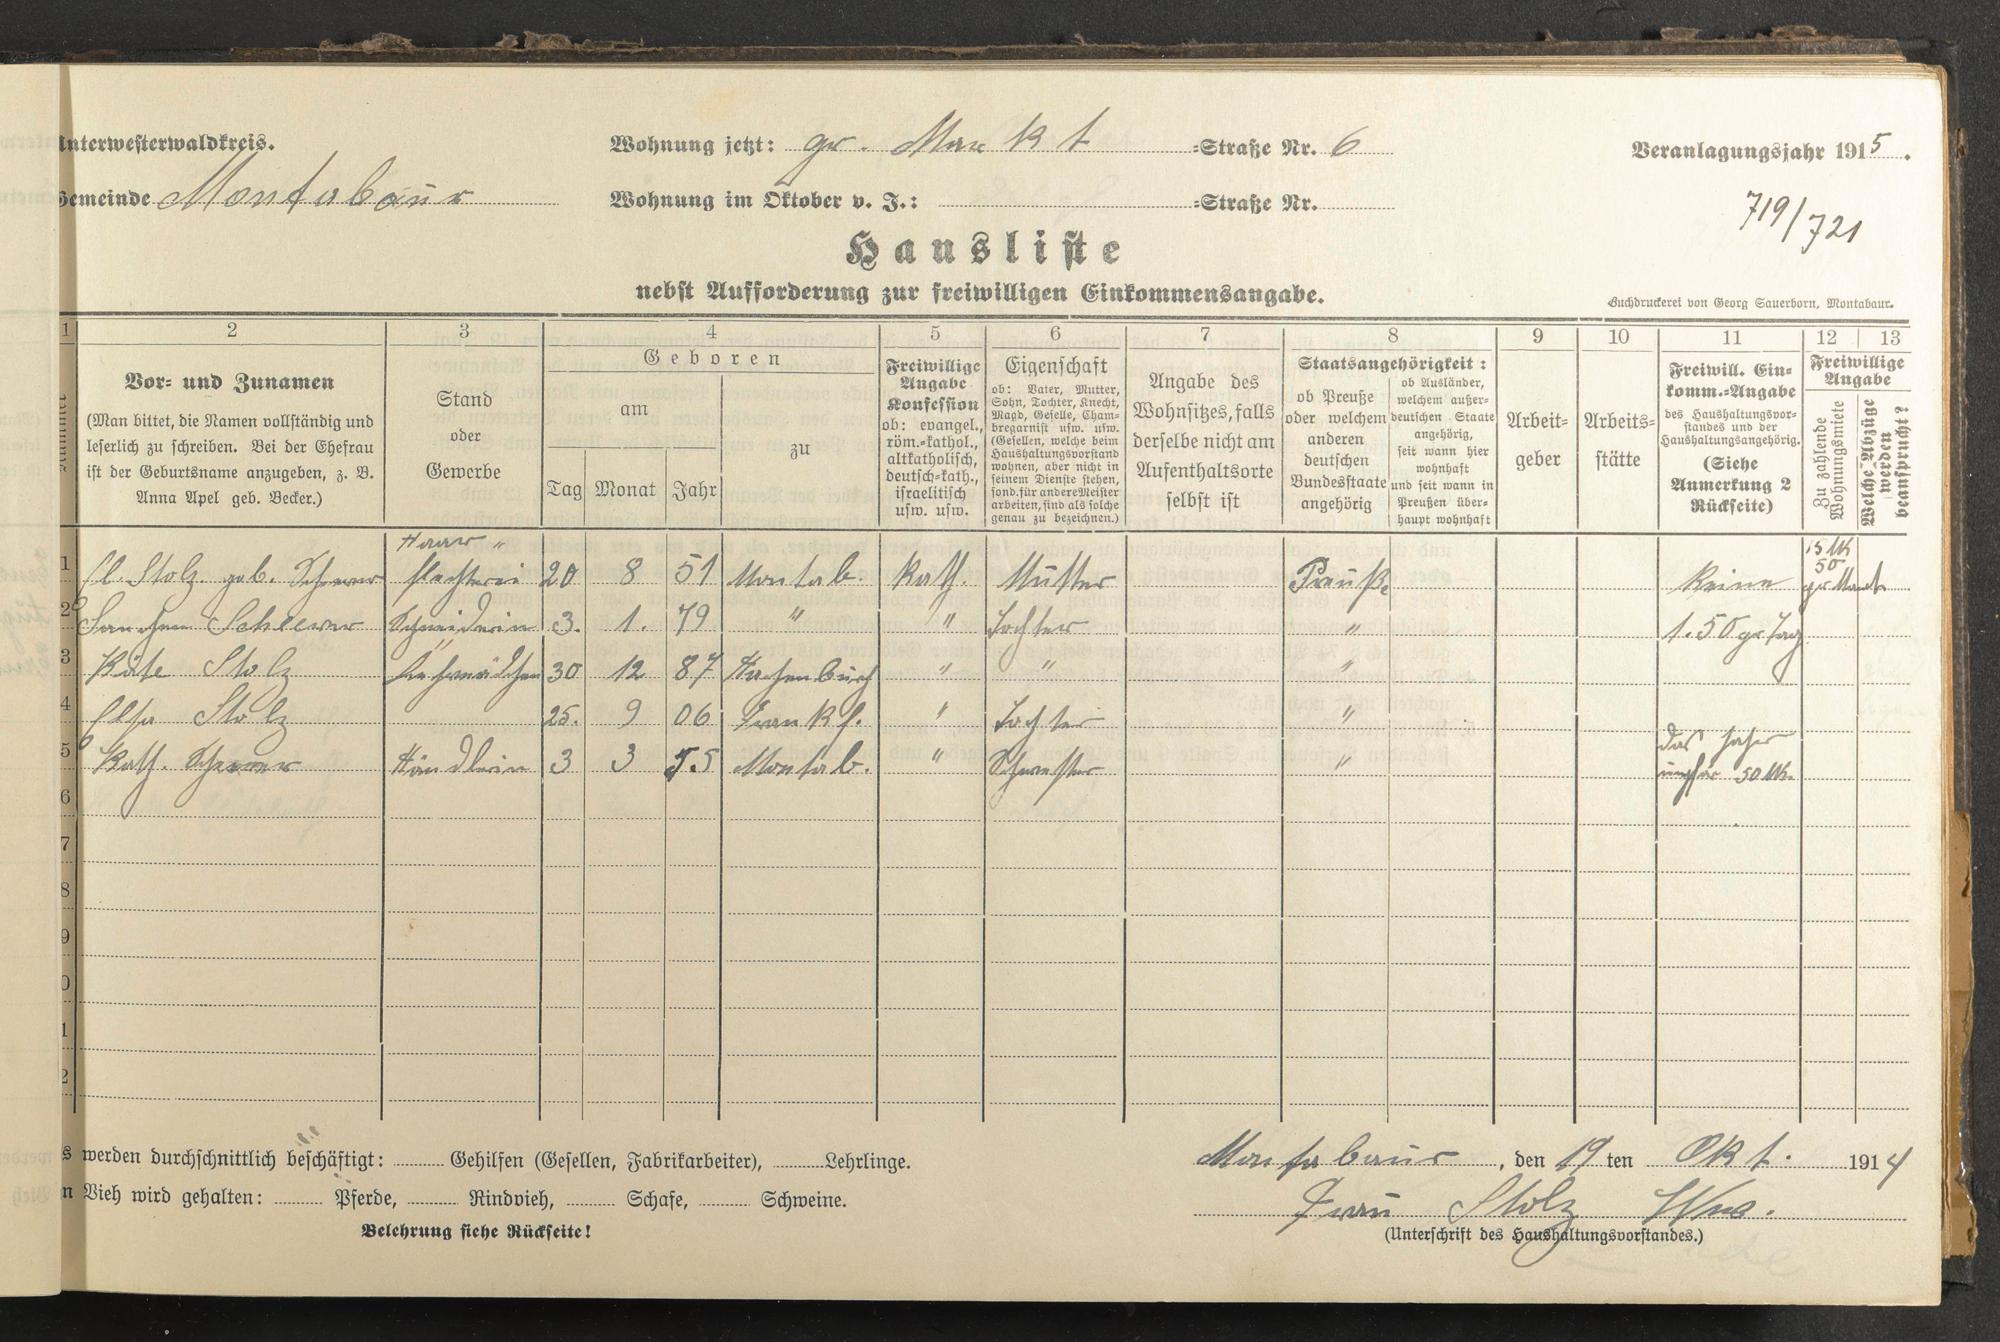 Unterwesterwaldkreis.
Wohnung jetzt: gr. Markt -Straße Nr. 6
Veranlagungsjahr 1915.
Gemeinde Montabaur
Wohnung im Oktober v. J.: -Straße Nr.
719/721
Hausliste
nebst Aufforderung zur freiwilligen Einkommensangabe.
Buchdruckerei von Georg Sauerborn, Montabaur.
1 2 3 4 5 6 7 8 9 10 11 12 13
Nummer
Vor- und Zunamen
(Man bittet, die Namen vollständig und
leserlich zu schreiben. Bei der Ehefrau
ist der Geburtsname anzugeben, z. B.
Anna Apel geb. Becker.)
Stand
oder
Gewerbe
Geboren
am
Tag Monat Jahr
zu
Freiwillige
Angabe
Konfession
ob: evangel.,
röm.-kathol.,
altkatholisch,
deutsch-kath.,
israelitisch
usw. usw.
Eigenschaft
ob: Vater, Mutter,
Sohn, Tochter, Knecht,
Magd, Geselle, Cham-
bregarnist usw. usw.
(Gesellen, welche beim
Haushaltungsvorstand
wohnen, aber nicht in
seinem Dienste stehen,
sond. für andere Meister
arbeiten, sind als solche
genau zu bezeichnen.)
Angabe des
Wohnsitzes, falls
derselbe nicht am
Aufenthaltsorte
selbst ist
Staatsangehörigkeit:
ob Preuße
oder welchem
anderen
deutschen
Bundesstaate
angehörig
ob Ausländer,
welchem außer-
deutschen Staate
angehörig,
seit wann hier
wohnhaft
und seit wann in
Preußen über-
haupt wohnhaft
Arbeit-
geber
Arbeits-
stätte
Freiwill. Ein-
komm.-Angabe
des Haushaltungsvor-
standes und der
Haushaltungsangehörig.
(Siehe
Anmerkung 2
Rückseite)
Freiwillige
Angabe
Zu zahlende
Wohnungsmiete
Welche Abzüge
werden
beansprucht?
1 Stolz geb. Scheerer Haar- flechterei 20 8 51 Montab. Kath. Mutter Preuße Keine 15 Mk 50
2 Scheerer Schneiderin 3. 1. 79 " " Tochter " 1.50 Tag
3 Käte Stolz 30 12 87 Hachenburg " " "
4 Elsa Stolz 25. 9 06 Frankf. " Tochter "
5 Kath. Scheerer Händlerin 3 3 55 Montab. " Schwester " das Jahr 50 Mk.
6
7
8
9
0
1
2
s werden durchschnittlich beschäftigt: Gehilfen (Gesellen, Fabrikarbeiter), Lehrlinge.
n Vieh wird gehalten: Pferde, Rindvieh, Schafe, Schweine.
Belehrung siehe Rückseite!
Montabaur, den 19ten Okt. 1914
Frau Stolz Wwe.
(Unterschrift des Haushaltungsvorstandes.)